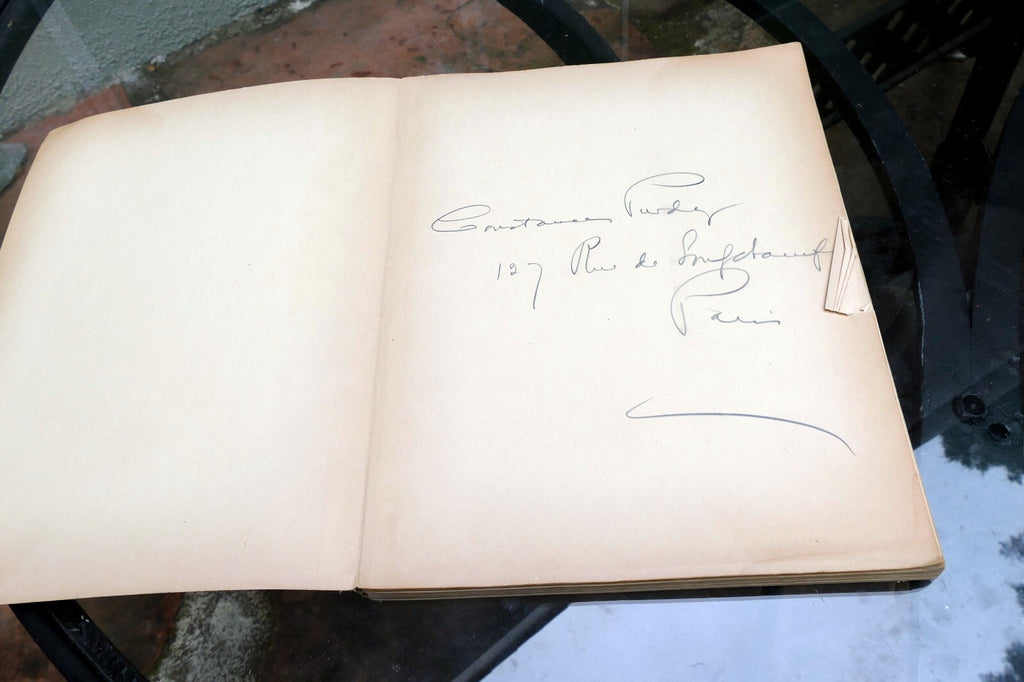 Constance Purdy
127 Rue de Longchamp
Paris